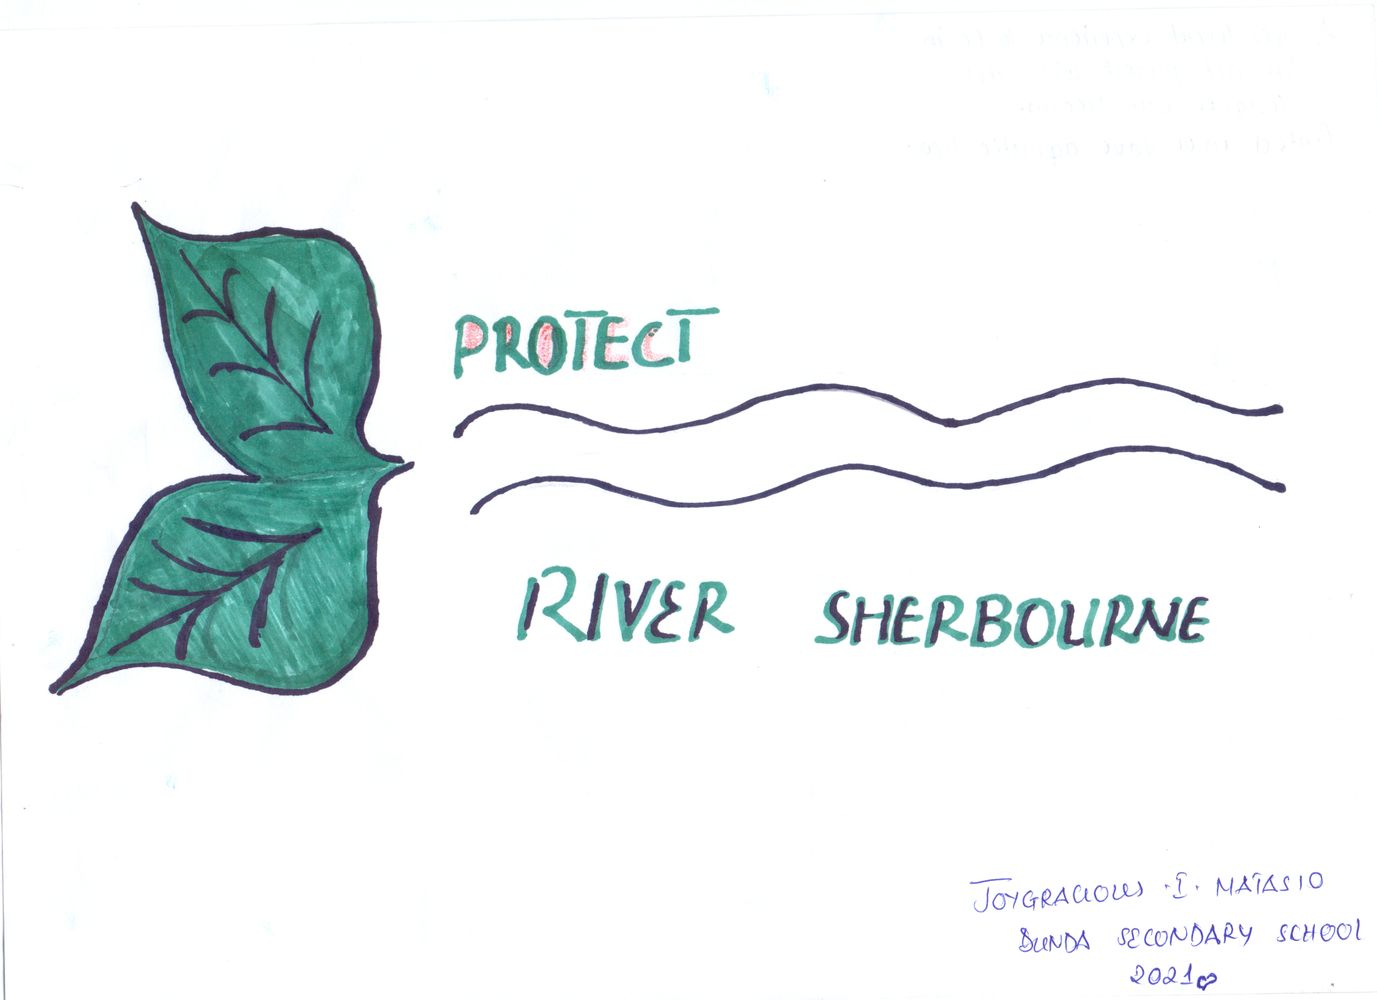 PROTECT
RIVER SHERBOURNE
JOYGRACIOUS .I. MATASIO
BUNDA SECONDARY SCHOOL
2021